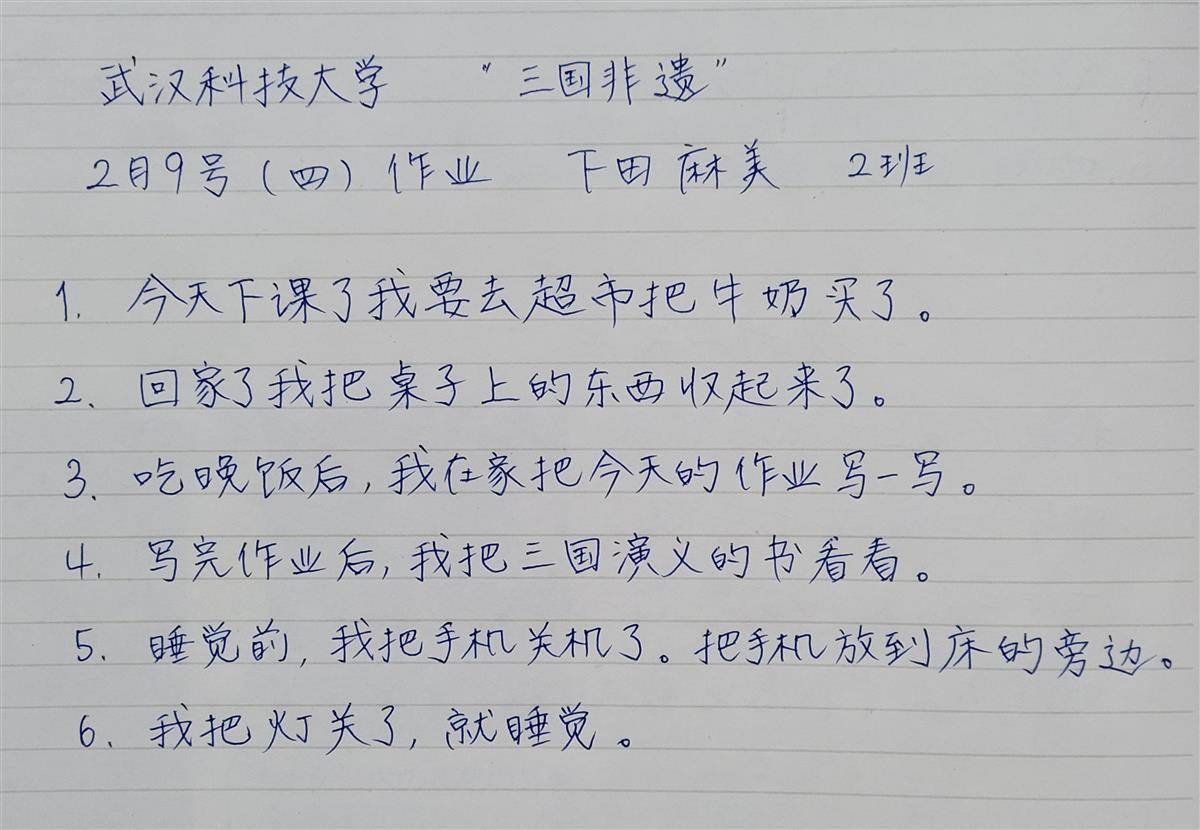 武汉科技大学 “三国非遗”
2月9号（四）作业 下田麻美 2班
1. 今天下课了我要去超市把牛奶买了。
2. 回家了我把桌子上的东西收起来了。
3. 吃晚饭后，我在家把今天的作业写一写。
4. 写完作业后，我把三国演义的书看看。
5. 睡觉前，我把手机关机了。把手机放到床的旁边。
6. 我把灯关了，就睡觉。